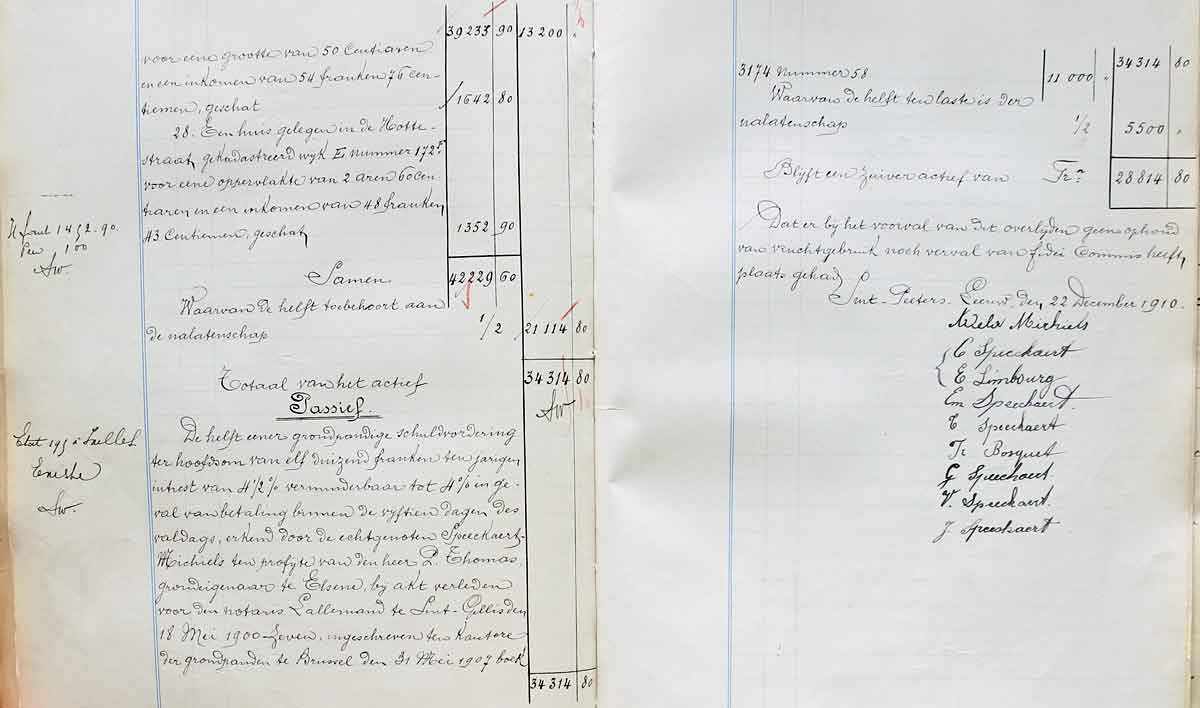 39233 90 13200 "
voor eene grootte van 50 Centiaren
en een inkomen van 54 franken 76 cen-
tiemen, geschat 1642 80
28. Een huis gelegen in de Hotte-
straat, gekadastreerd wyk E nummer 172F
voor eene oppervlakte van 2 aren 60 cen-
tiaren en een inkomen van 48 franken
43 Centiemen, geschat 1352 90
Il faut 1452.90.
100
Sw.
Samen 42229 60
Waarvan de helft toebehoort aan
de nalatenschap 1/2 21114 80
Totaal van het actief 34314 80
Sw
Passief.
De helft eener grondpandige schuldvordering
ter hoofdsom van elf duizend franken ten jarigen
intrest van 4 1/2 % verminderbaar tot 4% in ge-
val van betaling binnen de vyftien dagen des
valdags, erkend door de echtgenoten Speeckaert-
Michiels ten profyte van den heer P. Thomas,
grondeigenaar te Elsene, by akt verleden
voor den notaris Lallemand te Sint-Gillis den
18 Mei 1900-Zeven, ingeschreven ten kantore
der grondpanden te Brussel den 31 Mei 1907 boek
34314 80
Etat 195 à Ixelles
Sw.
34314 80
3174 nummer 58 11 000 "
Waarvan de helft ten laste is der
nalatenschap 1/2 5500 "
Blyft een zuiver actief van Frn 28814 80
Dat er by het voorval van dit overlyden geen ophoud
van vruchtgebruik noch verval van fidei Commis heeft
plaats gehad
Sint-Peeters-Leeuw, den 22 December 1910.
Michiels
C Speeckaert
E Limbourg
Em Speeckaert.
E Speeckaert
Fr Bosquet
G Speeckaert.
V. Speeckaert.
J Speeckaert